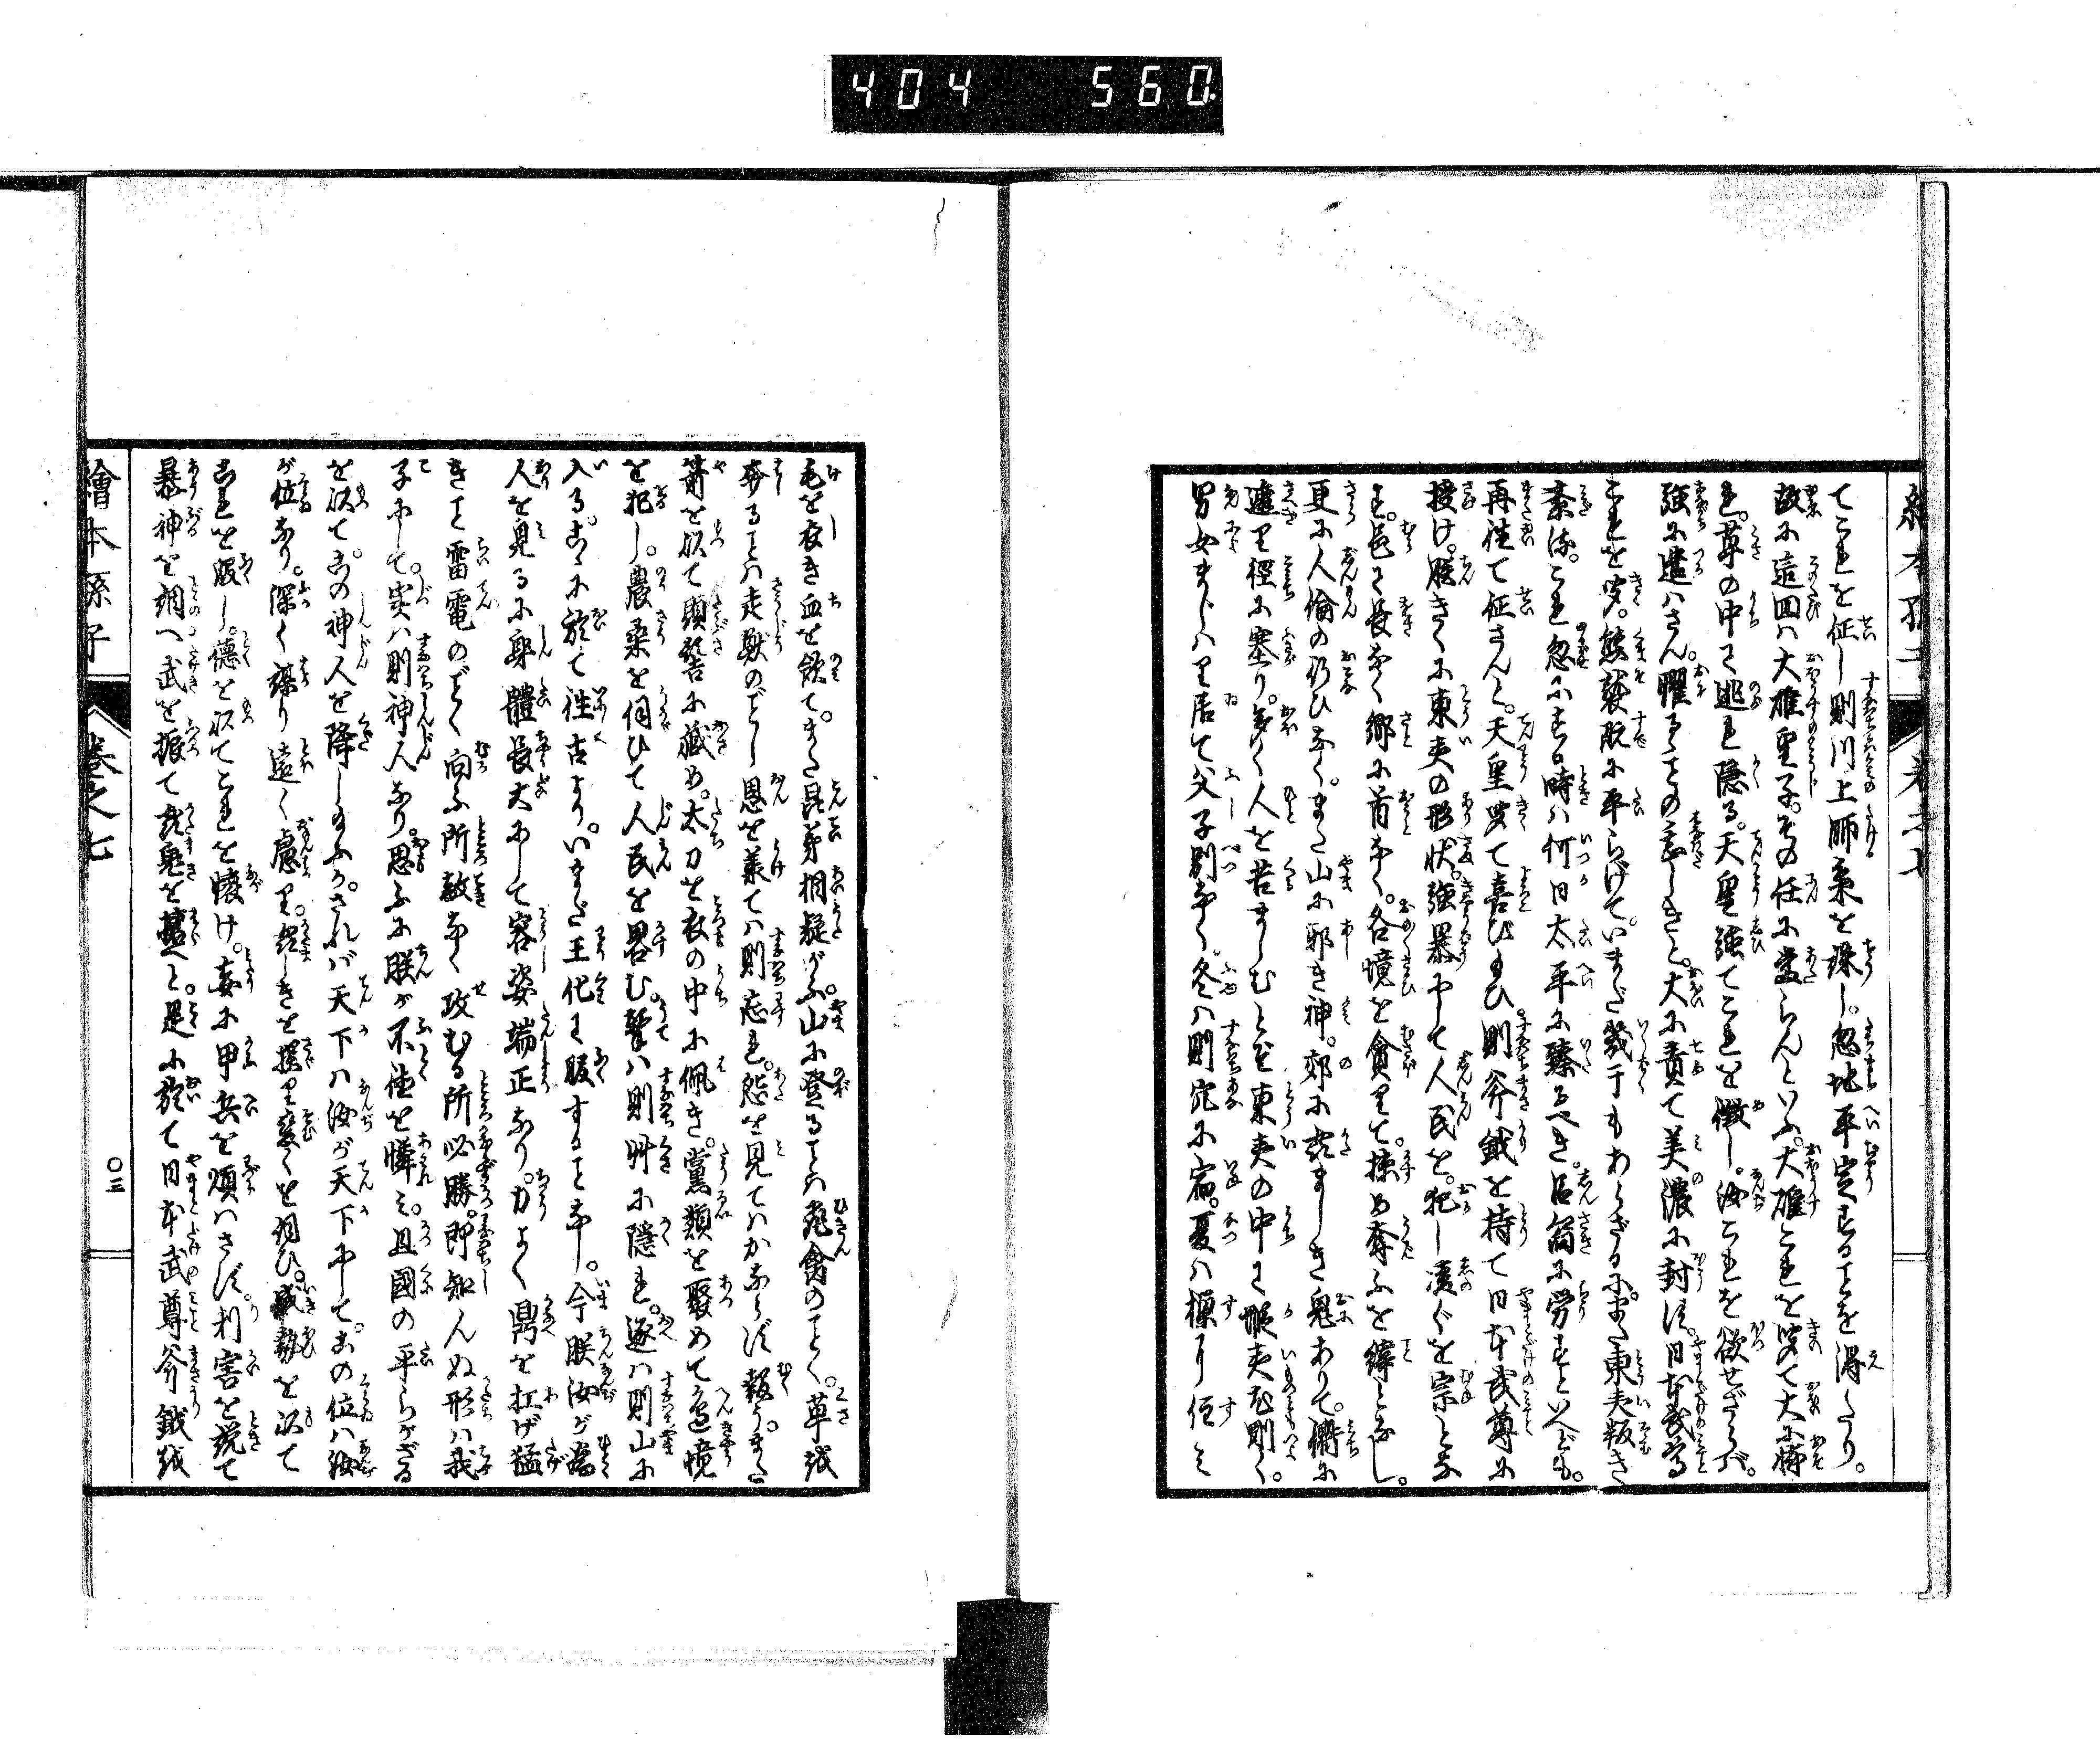 404 560
繪本孫子
巻之七
てこれを征し則川上師梟を殊し。忽地平定することを得たり。
故に這回ハ大碓皇子。その任に當らんといふ。大碓これを聞て大に怖
れ。草の中に逃れ隠る。天皇強てこれを徴し。汝これを欲せざらバ。
強に遣ハさん。懼ることの甚しきと。大に責て美濃に封ず。日本武尊
これを聞。熊襲既に平らげて。いまだ幾干もあらざるに。また東夷叛き
紊汰。これ忽にする時ハ何日太平に臻るべき。臣甯に労すといへども。
再往て征さんと。天皇聞て喜び給ひ。則斧鉞を持て日本武尊に
授け。朕きくに東夷の形状。強暴にして人民を。犯し凌ぐを宗とな
し。邑に長なく郷に首なく。各境を貪りて。掠め奪ふを縡となし。
更に人倫の行ひなく。また山に邪き神。郊に姦ましき鬼ありて。衢に
遮り徑に塞り。多く人を苦ましむとぞ東夷の中に蝦夷尤剛く。
男女まじハり居て父子別なく。冬ハ則穴に宿。夏ハ樔に住ミ
毛を衣き血を飲て。また昆弟相疑がふ。山に登ることハ飛禽のごとく。草を
奔ることハ走獣のごとし恩を業てハ則忘れ。怨を見てハかならず報う。また
箭を以て頭髻に藏め。太刀を衣の中に佩き。黨類を聚めて邊境
を犯し。農桑を伺ひて人民を畧む。撃ハ則艸に隠れ。逐ハ則山に
入る。こゝに於て往古より。いまだ王化に服することなし。今朕汝が為
人を見るに身體長大にして容姿端正なり。力よく鼎を扛げ猛
きこと雷電のごとく向ふ所敵なく攻むる所必勝。即知んぬ形ハ我
子にして。実ハ則神人なり。思ふに朕が不徳を憐ミ。且國の平らがざる
を以て。この神人を降し給ふか。されバ天下ハ汝が天下にして。この位ハ汝
が位なり。深く謀り遠く慮り。姦しきを探り変くを伺ひ。威勢を以て
これを服し。徳を以てこれを懐け。妄に甲兵を煩ハさず利害を説て
暴神を調へ武を振て姦鬼を攘へと。是に於て日本武尊斧鉞を
繪本孫子
巻之七
〇三